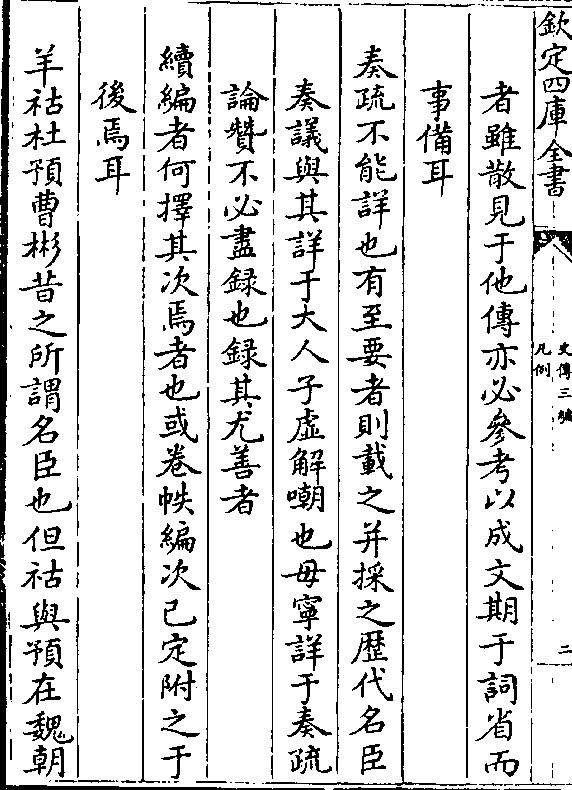 欽定四庫全書
史傳三編
凡例
二
者雖散見于他傳亦必參考以成文期于詞省而
事備耳
奏疏不能詳也有至要者則載之并採之歷代名臣
奏議與其詳于大人子虛解嘲也毋寧詳于奏疏
論贊不必盡録也録其尤善者
續編者何擇其次焉者也或卷帙編次已定附之于
後焉耳
羊祜杜預曹彬昔之所謂名臣也但祜與預在魏朝